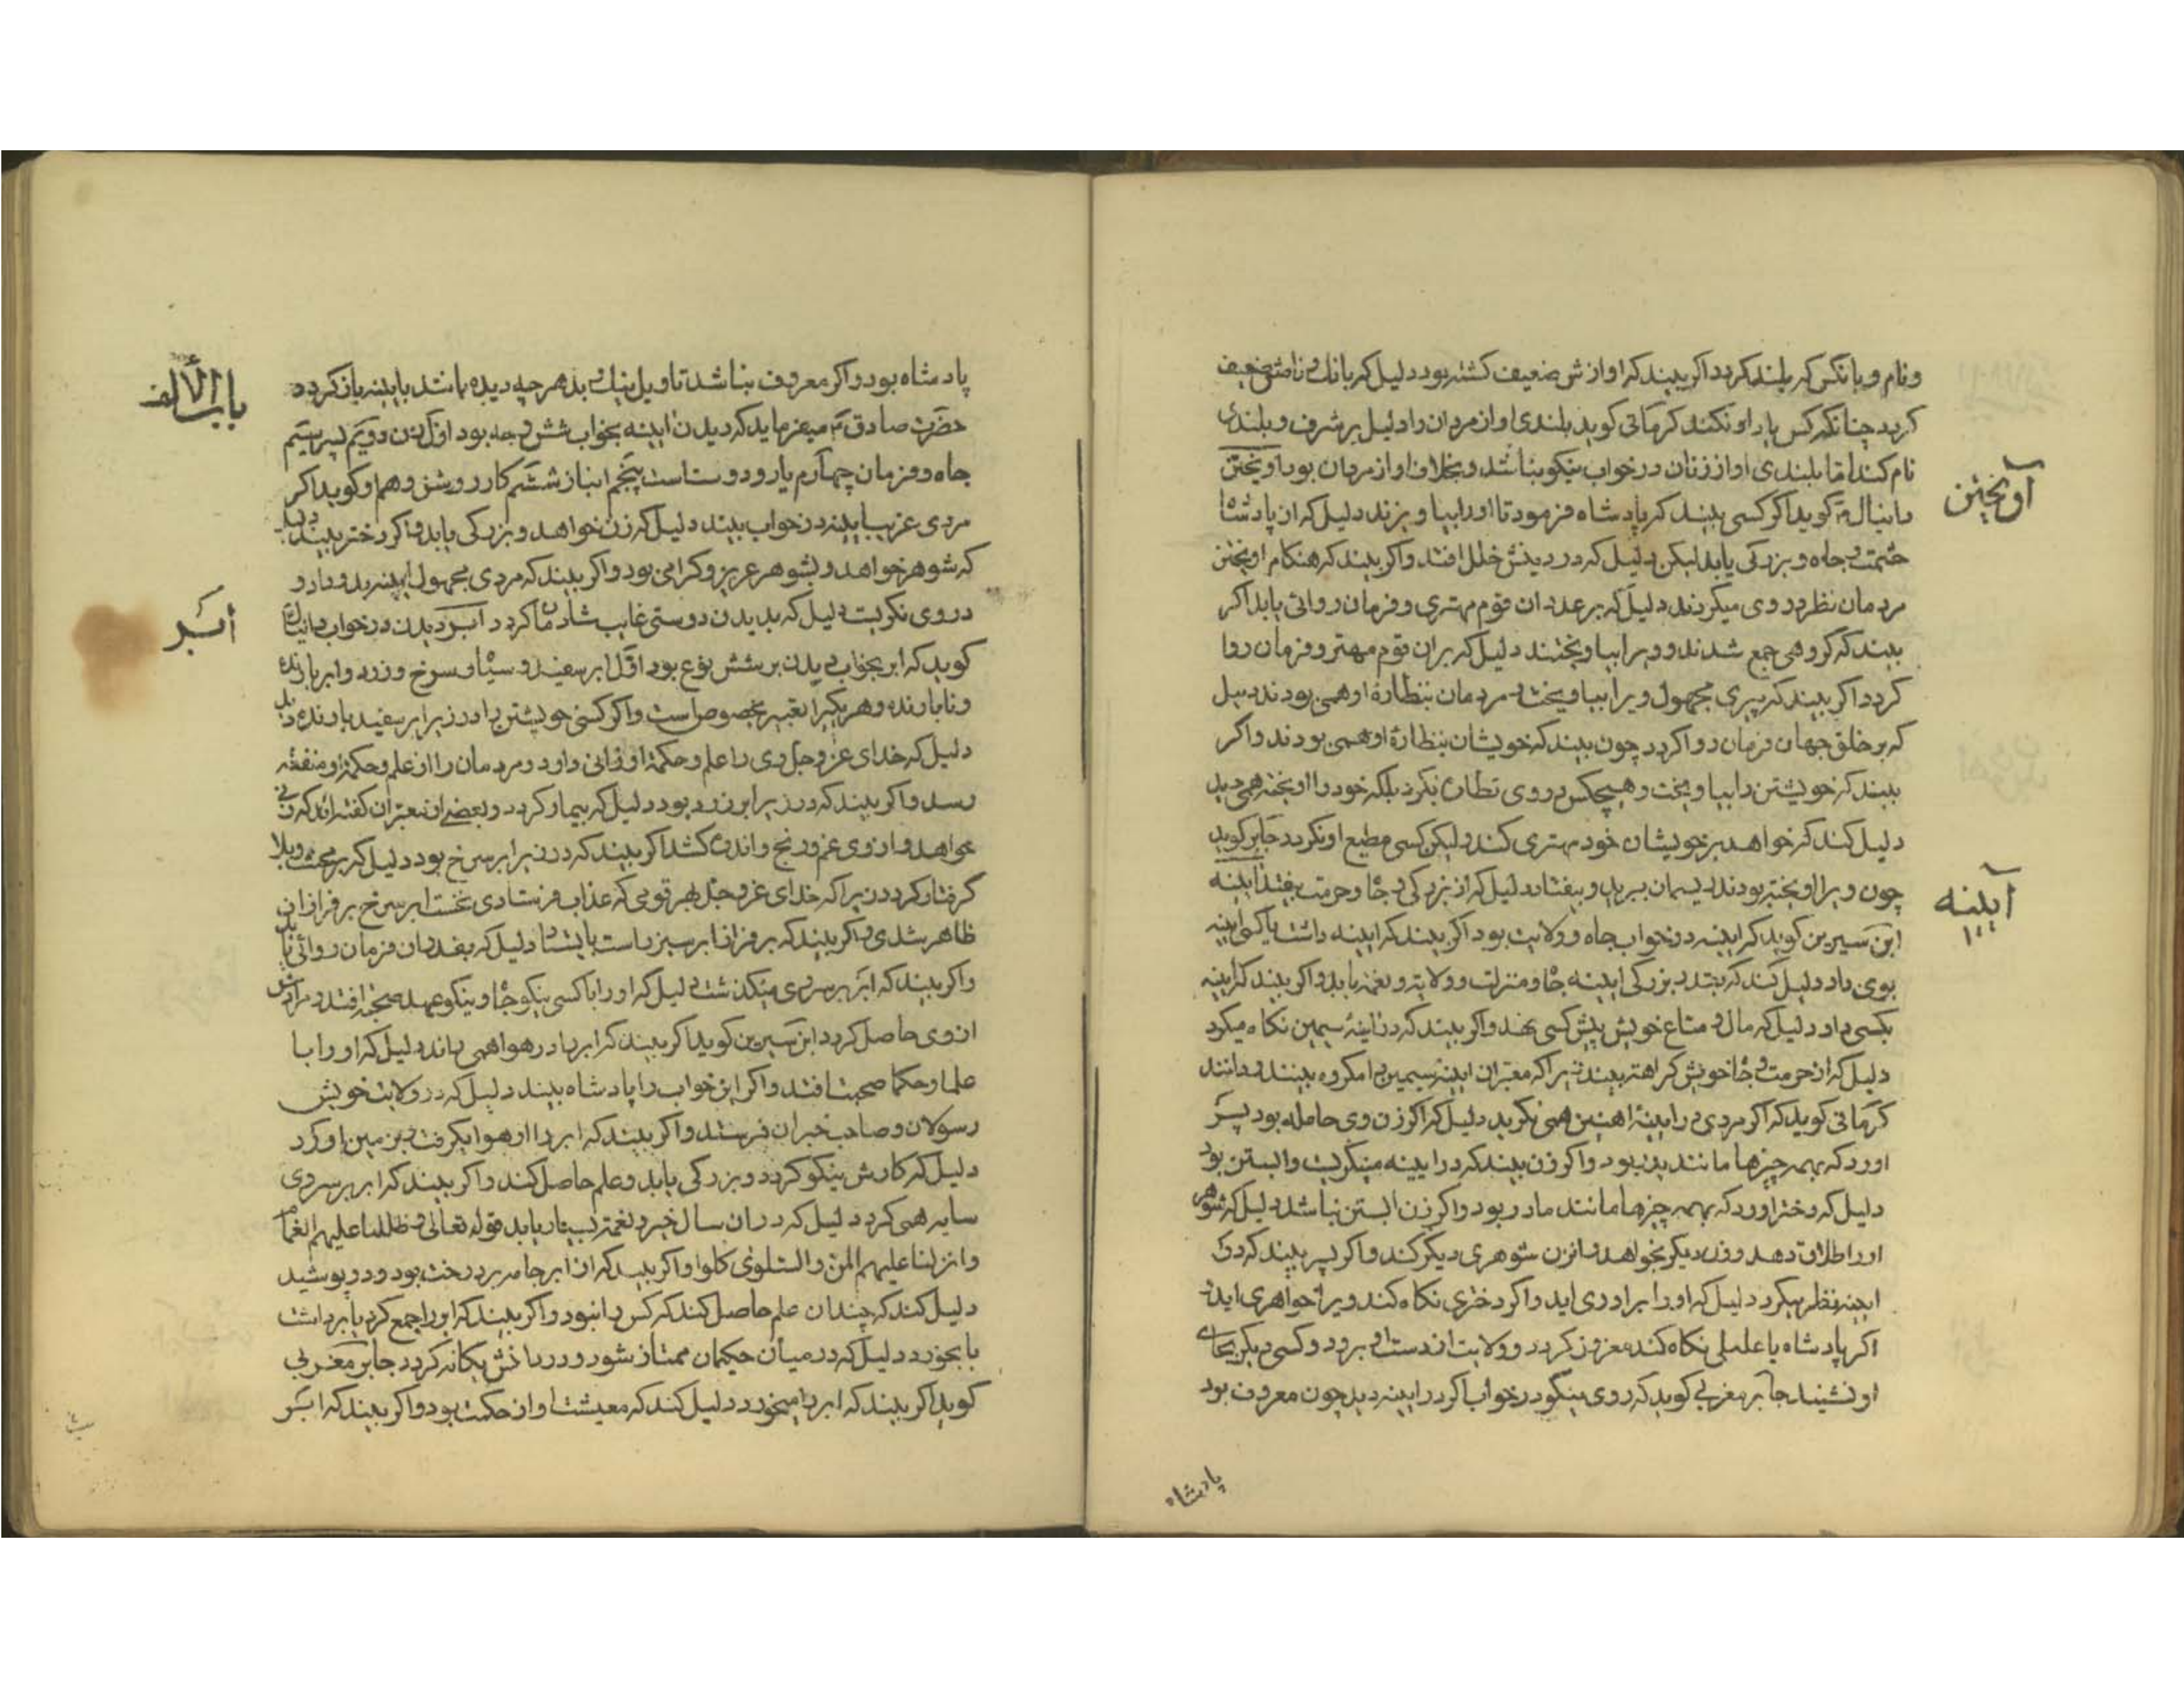 ونام و بانکش کم بلند کردد اکر بیند که اوازش ضعیف کشته بود دلیل که بانک و نامش ضعیف
کردد چنانکه کس یاد او نکند کرمانی کوید بلندی اواز مردان را دلیل بر شرف و بلندی
نام کند اما بلندی اواز زنان در خواب نیکو نباشد و بخلاف اواز مردان بود اویختن
آویختن
دانیال کوید اکر کسی بیند که پادشاه فرمود تا او را بیاویزند دلیل که از پادشاه
حشمت و جاه و بزرکی یابد لیکن دلیل که در دینش خلل افتد و اکر بیند که هنکام اویختن
مردمان نظر در وی میکردند دلیل که بر عدد ان قوم مهتری و فرمان روائی یابد اکر
بیند که کروهی جمع شدند و ویرا بیاویختند دلیل که بران قوم مهتر و فرمان روا
کردد اکر بیند که پیری مجهول ویرا بیاویخت و مردمان بنظاره او همی بودند دلیل
که بر خلق جهان فرمان روا کردد چون بیند که خویشان بنظاره او همی بودند و اکر
بیند که خویشتن را بیاویخت و هیچکس در وی نظاره نکرد بلکه خود را اویخته همی دید
دلیل کند که خواهد بر خویشان خود مهتری کند ولیکن کسی مطیع او نکردد جابر کوید
چون ویرا اویخته بودند ریسمان ببرید و بیفتاد دلیل که از بزرکی و جاه و حرمت بیفتد اینه
آیینه
ابن سیرین کوید که اینه در خواب جاه و ولایت بود اکر بیند که اینه داشت یا کسی اینه
بوی داد دلیل کند که بقدر بزرکی اینه جاه و منزلت و ولایت و نعمت یابد و اکر بیند که اینه
بکسی داد دلیل که مال و متاع خویش پیش کسی نهد و اکر بیند که در اینهٔ سیمین نکاه میکرد
دلیل که از حرمت و جاه خویش کراهت بیند زیرا که معبران اینه سیمین را مکروه بینند و دانند
کرمانی کوید که اکر مردی در اینهٔ اهنین همی نکرید دلیل که اکر زن وی حامله بود پسر
اورد که بهمه چیزها مانند پدر بود و اکر زن بیند که در ایینه مینکریست و ابستن بود
دلیل که دختر اورد که بهمه چیزها مانند مادر بود و اکر زن ابستن نباشد دلیل که شوهر
او را طلاق دهد و زن دیکر بخواهد و انزن شوهری دیکر کند و اکر پسر بیند که در
اینه نظر میکرد دلیل که او را برادری اید و اکر دختری نکاه کند ویرا خواهری اید
اکر پادشاه یا عاملی نکاه کند معزول کردد و ولایت از دست او برود و کسی دیکر بجای
او نشیند جابر مغربی کوید که روی نیکو در خواب اکر در اینه دید چون معروف بود
پادشاه
باب الألف
پادشاه بود و اکر معروف نباشد تاویل نیک و بد هر چه دیده مانند بایینه باز کردد
حضرت صادق ع میفرماید که دیدن اینه بخواب شش وجه بود اول زن دویم پسر سیم
جاه و فرمان چهارم یار و دوست است پنجم انباز ششم کار روشن و هم او کوید اکر
مردی عزب ایینه در خواب بیند دلیل که زن خواهد و بزرکی یابد و اکر دختر بیند دلیل
که شوهر خواهد و بشوهر عزیز و کرامی بود و اکر بیند که مردی مجهول ایینه بدو داد و
در وی نکریست دلیل که بدیدن دوستی غایب شادمان کردد ابر دیدن در خواب دانیال
أبر
کوید که ابر بخواب دیدن بر شش نوع بود اول ابر سفید و سیاه و سرخ و زرد و ابر بارنده
و نابارنده و هر یکیرا تعبیر مخصوص است و اکر کسی خویشتن را در زیر ابر سفید بارنده دید
دلیل که خدای عز و جل وی را علم و حکمة ارزانی دارد و مردمان را از علم و حکمة او منفعة
رسد و اکر بیند که در زیر ابر زرد بود دلیل که بیمار کردد و بعضی از معبران کفته اند که زنی
خواهد و از وی غم و رنج و اندوه کشد اکر بیند که در زیر ابر سرخ بود دلیل که بر محنت و بلا
کرفتار کردد زیرا که خدای عز و جل بهر قومی که عذاب فرستادی نخست ابر سرخ بر فراز ان
ظاهر شدی و اکر بیند که بر فراز ابر سبز راست بایستاد دلیل که بقدر ان فرمان روائی یابد
و اکر بیند که ابر بر سر وی میکذشت دلیل که او را با کسی نیکوخواه و نیکوعهد صحبت افتد و مرادش
از وی حاصل کردد ابن سیرین کوید اکر بیند که ابر را در هوا همی راند دلیل که او را با
علما و حکما صحبت افتد و اکر این خواب را پادشاه بیند دلیل که در ولایت خویش
رسولان و صاحب خبران فرستد و اکر بیند که ابر را از هوا بکرفت و بزمین اورد
دلیل که کارش نیکو کردد و بزرکی یابد و علم حاصل کند و اکر بیند که ابر بر سر وی
سایه همی کرد دلیل که در ان سال خیر و نعمت بسیار یابد قوله تعالی و ظللنا علیهم الغمام
وانزلنا علیهم المن والسلوی کلوا و اکر بیند که از ابر جامه بر درخت بود و در پوشید
دلیل کند که چندان علم حاصل کند که کس را نبود و اکر بیند که ابر را جمع کرد یا برداشت
یا بخورد دلیل که در میان حکیمان ممتاز شود و در دانش یکانه کردد جابر مغربی
کوید اکر بیند که ابر را میخورد دلیل کند که معیشت او از حکمت بود و اکر بیند که ابر